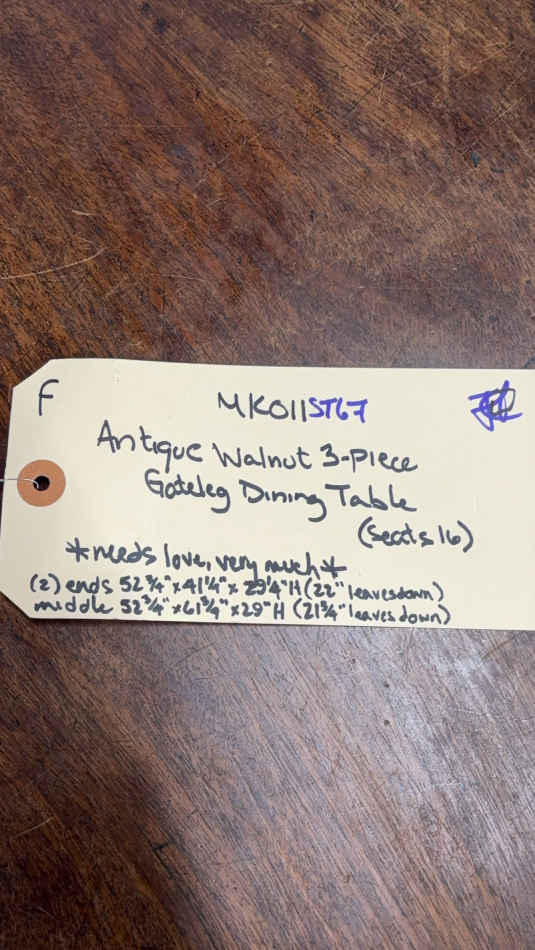 F
MK011ST67
Antique Walnut 3-Piece
Gateleg Dining Table
(Seats 16)
*needs love, very much*
(2) ends 52 3/4" x 41 1/4" x 29 1/4"H (22" leaves down)
middle 52 3/4" x 61 3/4" x 29"H (21 3/4" leaves down)